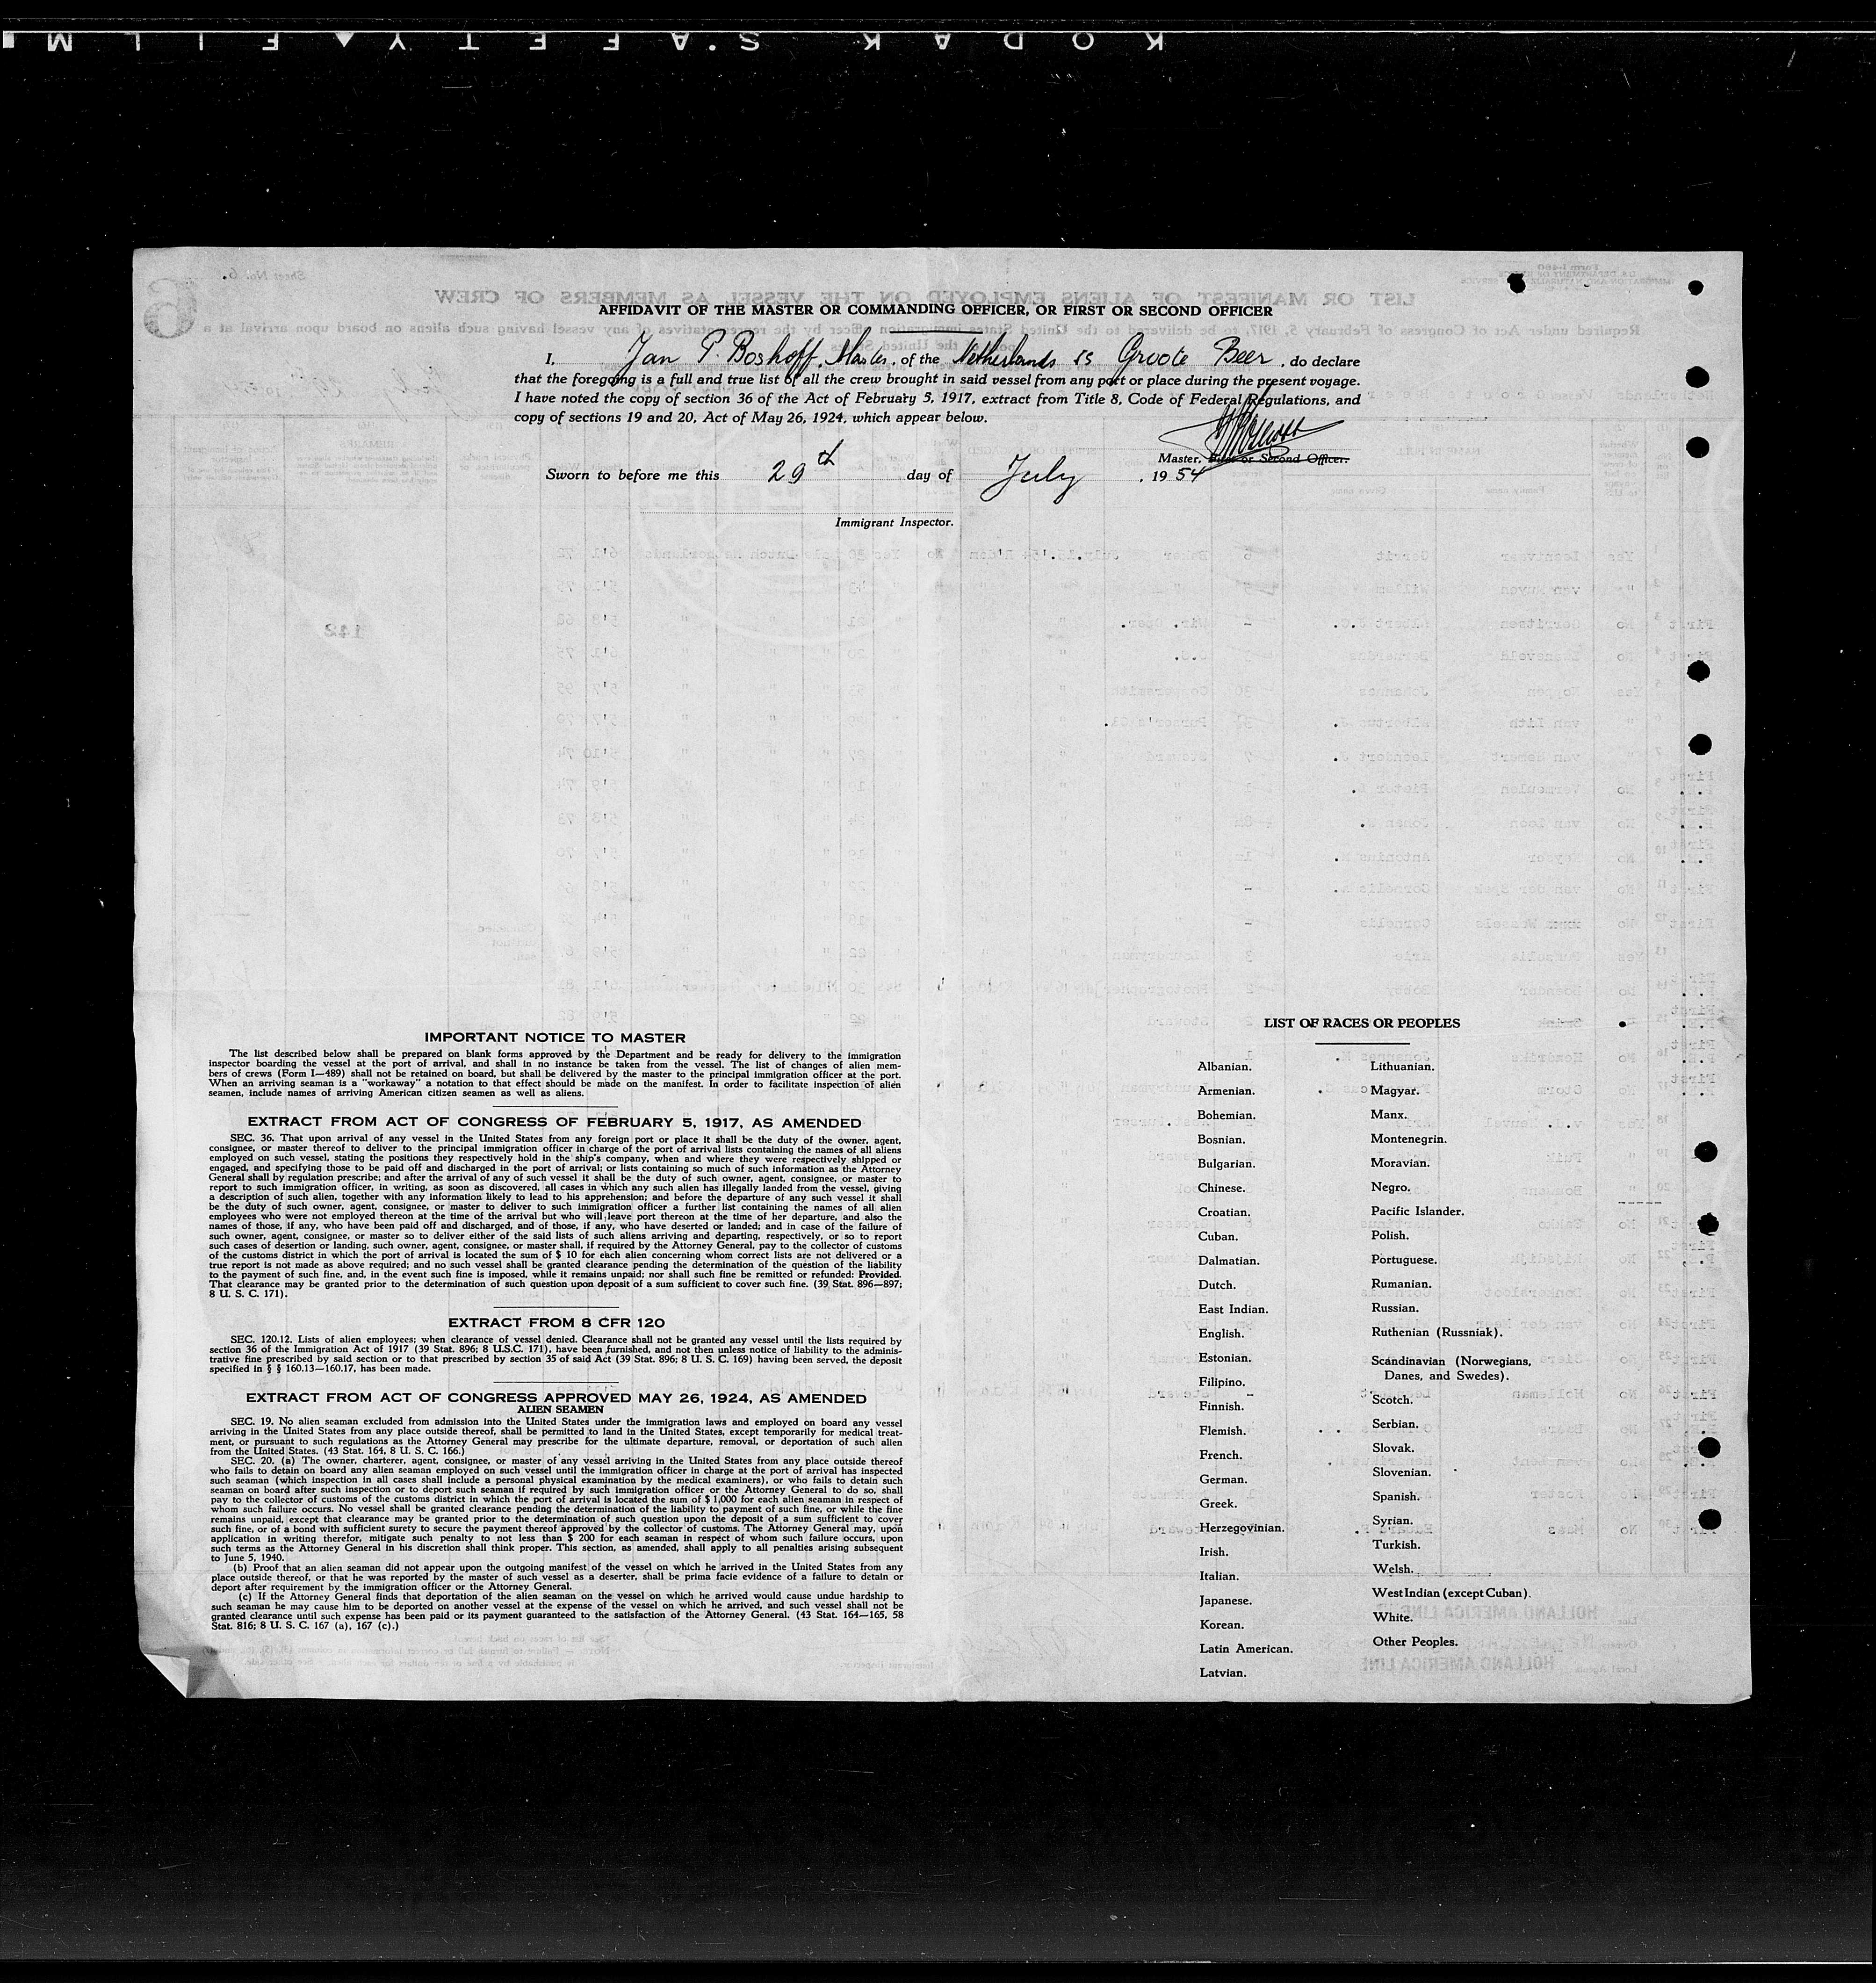 KODAK S.AFETY ▲ FILM
AFFIDAVIT OF THE MASTER OR COMMANDING OFFICER, OR FIRST OR SECOND OFFICER
I, Jan P. Boshoff, Master, of the Netherlands ss Groote Beer, do declare
that the foregoing is a full and true list of all the crew brought in said vessel from any port or place during the present voyage.
I have noted the copy of section 36 of the Act of February 5, 1917, extract from Title 8, Code of Federal Regulations, and
copy of sections 19 and 20, Act of May 26, 1924, which appear below.
Master, First or Second Officer.
Sworn to before me this 29th day of July, 1954
Immigrant Inspector.
IMPORTANT NOTICE TO MASTER
The list described below shall be prepared on blank forms approved by the Department and be ready for delivery to the immigration
inspector boarding the vessel at the port of arrival, and shall in no instance be taken from the vessel. The list of changes of alien mem-
bers of crews (Form I—489) shall not be retained on board, but shall be delivered by the master to the principal immigration officer at the port.
When an arriving seaman is a "workaway" a notation to that effect should be made on the manifest. In order to facilitate inspection of alien
seamen, include names of arriving American citizen seamen as well as aliens.
EXTRACT FROM ACT OF CONGRESS OF FEBRUARY 5, 1917, AS AMENDED
SEC. 36. That upon arrival of any vessel in the United States from any foreign port or place it shall be the duty of the owner, agent,
consignee, or master thereof to deliver to the principal immigration officer in charge of the port of arrival lists containing the names of all aliens
employed on such vessel, stating the positions they respectively hold in the ship's company, when and where they were respectively shipped or
engaged, and specifying those to be paid off and discharged in the port of arrival; or lists containing so much of such information as the Attorney
General shall by regulation prescribe; and after the arrival of any of such vessel it shall be the duty of such owner, agent, consignee, or master to
report to such immigration officer, in writing, as soon as discovered, all cases in which any such alien has illegally landed from the vessel, giving
a description of such alien, together with any information likely to lead to his apprehension; and before the departure of any such vessel it shall
be the duty of such owner, agent, consignee, or master to deliver to such immigration officer a further list containing the names of all alien
employees who were not employed thereon at the time of the arrival but who will leave port thereon at the time of her departure, and also the
names of those, if any, who have been paid off and discharged, and of those, if any, who have deserted or landed; and in case of the failure of
such owner, agent, consignee, or master so to deliver either of the said lists of such aliens arriving and departing, respectively, or so to report
such cases of desertion or landing, such owner, agent, consignee, or master shall, if required by the Attorney General, pay to the collector of customs
of the customs district in which the port of arrival is located the sum of $ 10 for each alien concerning whom correct lists are not delivered or a
true report is not made as above required; and no such vessel shall be granted clearance pending the determination of the question of the liability
to the payment of such fine, and, in the event such fine is imposed, while it remains unpaid; nor shall such fine be remitted or refunded: Provided.
That clearance may be granted prior to the determination of such question upon deposit of a sum sufficient to cover such fine. (39 Stat. 896—897;
8 U. S. C. 171).
EXTRACT FROM 8 CFR 120
SEC. 120.12. Lists of alien employees; when clearance of vessel denied. Clearance shall not be granted any vessel until the lists required by
section 36 of the Immigration Act of 1917 (39 Stat. 896; 8 U.S.C. 171), have been furnished, and not then unless notice of liability to the adminis-
trative fine prescribed by said section or to that prescribed by section 35 of said Act (39 Stat. 896; 8 U. S. C. 169) having been served, the deposit
specified in § § 160.13—160.17, has been made.
EXTRACT FROM ACT OF CONGRESS APPROVED MAY 26, 1924, AS AMENDED
ALIEN SEAMEN
SEC. 19. No alien seaman excluded from admission into the United States under the immigration laws and employed on board any vessel
arriving in the United States from any place outside thereof, shall be permitted to land in the United States, except temporarily for medical treat-
ment, or pursuant to such regulations as the Attorney General may prescribe for the ultimate departure, removal, or deportation of such alien
from the United States. (43 Stat. 164, 8 U. S. C. 166.)
SEC. 20. (a) The owner, charterer, agent, consignee, or master of any vessel arriving in the United States from any place outside thereof
who fails to detain on board any alien seaman employed on such vessel until the immigration officer in charge at the port of arrival has inspected
such seaman (which inspection in all cases shall include a personal physical examination by the medical examiners), or who fails to detain such
seaman on board after such inspection or to deport such seaman if required by such immigration officer or the Attorney General to do so, shall
pay to the collector of customs of the customs district in which the port of arrival is located the sum of $ 1,000 for each alien seaman in respect of
whom such failure occurs. No vessel shall be granted clearance pending the determination of the liability to payment of such fine, or while the fine
remains unpaid, except that clearance may be granted prior to the determination of such question upon the deposit of a sum sufficient to cover
such fine, or of a bond with sufficient surety to secure the payment thereof approved by the collector of customs. The Attorney General may, upon
application in writing therefor, mitigate such penalty to not less than $ 200 for each seaman in respect of whom such failure occurs, upon
such terms as the Attorney General in his discretion shall think proper. This section, as amended, shall apply to all penalties arising subsequent
to June 5, 1940.
(b) Proof that an alien seaman did not appear upon the outgoing manifest of the vessel on which he arrived in the United States from any
place outside thereof, or that he was reported by the master of such vessel as a deserter, shall be prima facie evidence of a failure to detain or
deport after requirement by the immigration officer or the Attorney General.
(c) If the Attorney General finds that deportation of the alien seaman on the vessel on which he arrived would cause undue hardship to
such seaman he may cause him to be deported on another vessel at the expense of the vessel on which he arrived, and such vessel shall not be
granted clearance until such expense has been paid or its payment guaranteed to the satisfaction of the Attorney General. (43 Stat. 164—165, 58
Stat. 816; 8 U. S. C. 167 (a), 167 (c).)
LIST OF RACES OR PEOPLES
Albanian.
Armenian.
Bohemian.
Bosnian.
Bulgarian.
Chinese.
Croatian.
Cuban.
Dalmatian.
Dutch.
East Indian.
English.
Estonian.
Filipino.
Finnish.
Flemish.
French.
German.
Greek.
Herzegovinian.
Irish.
Italian.
Japanese.
Korean.
Latin American.
Latvian.
Lithuanian.
Magyar.
Manx.
Montenegrin.
Moravian.
Negro.
Pacific Islander.
Polish.
Portuguese.
Rumanian.
Russian.
Ruthenian (Russniak).
Scandinavian (Norwegians,
Danes, and Swedes).
Scotch.
Serbian.
Slovak.
Slovenian.
Spanish.
Syrian.
Turkish.
Welsh.
West Indian (except Cuban).
White.
Other Peoples.